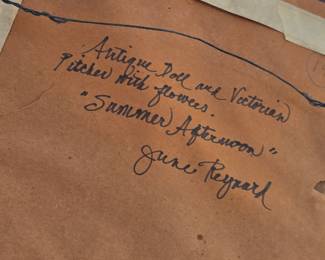 Antique Doll and Victorian
Pitcher with flowers.
"Summer Afternoon"
June Reynard